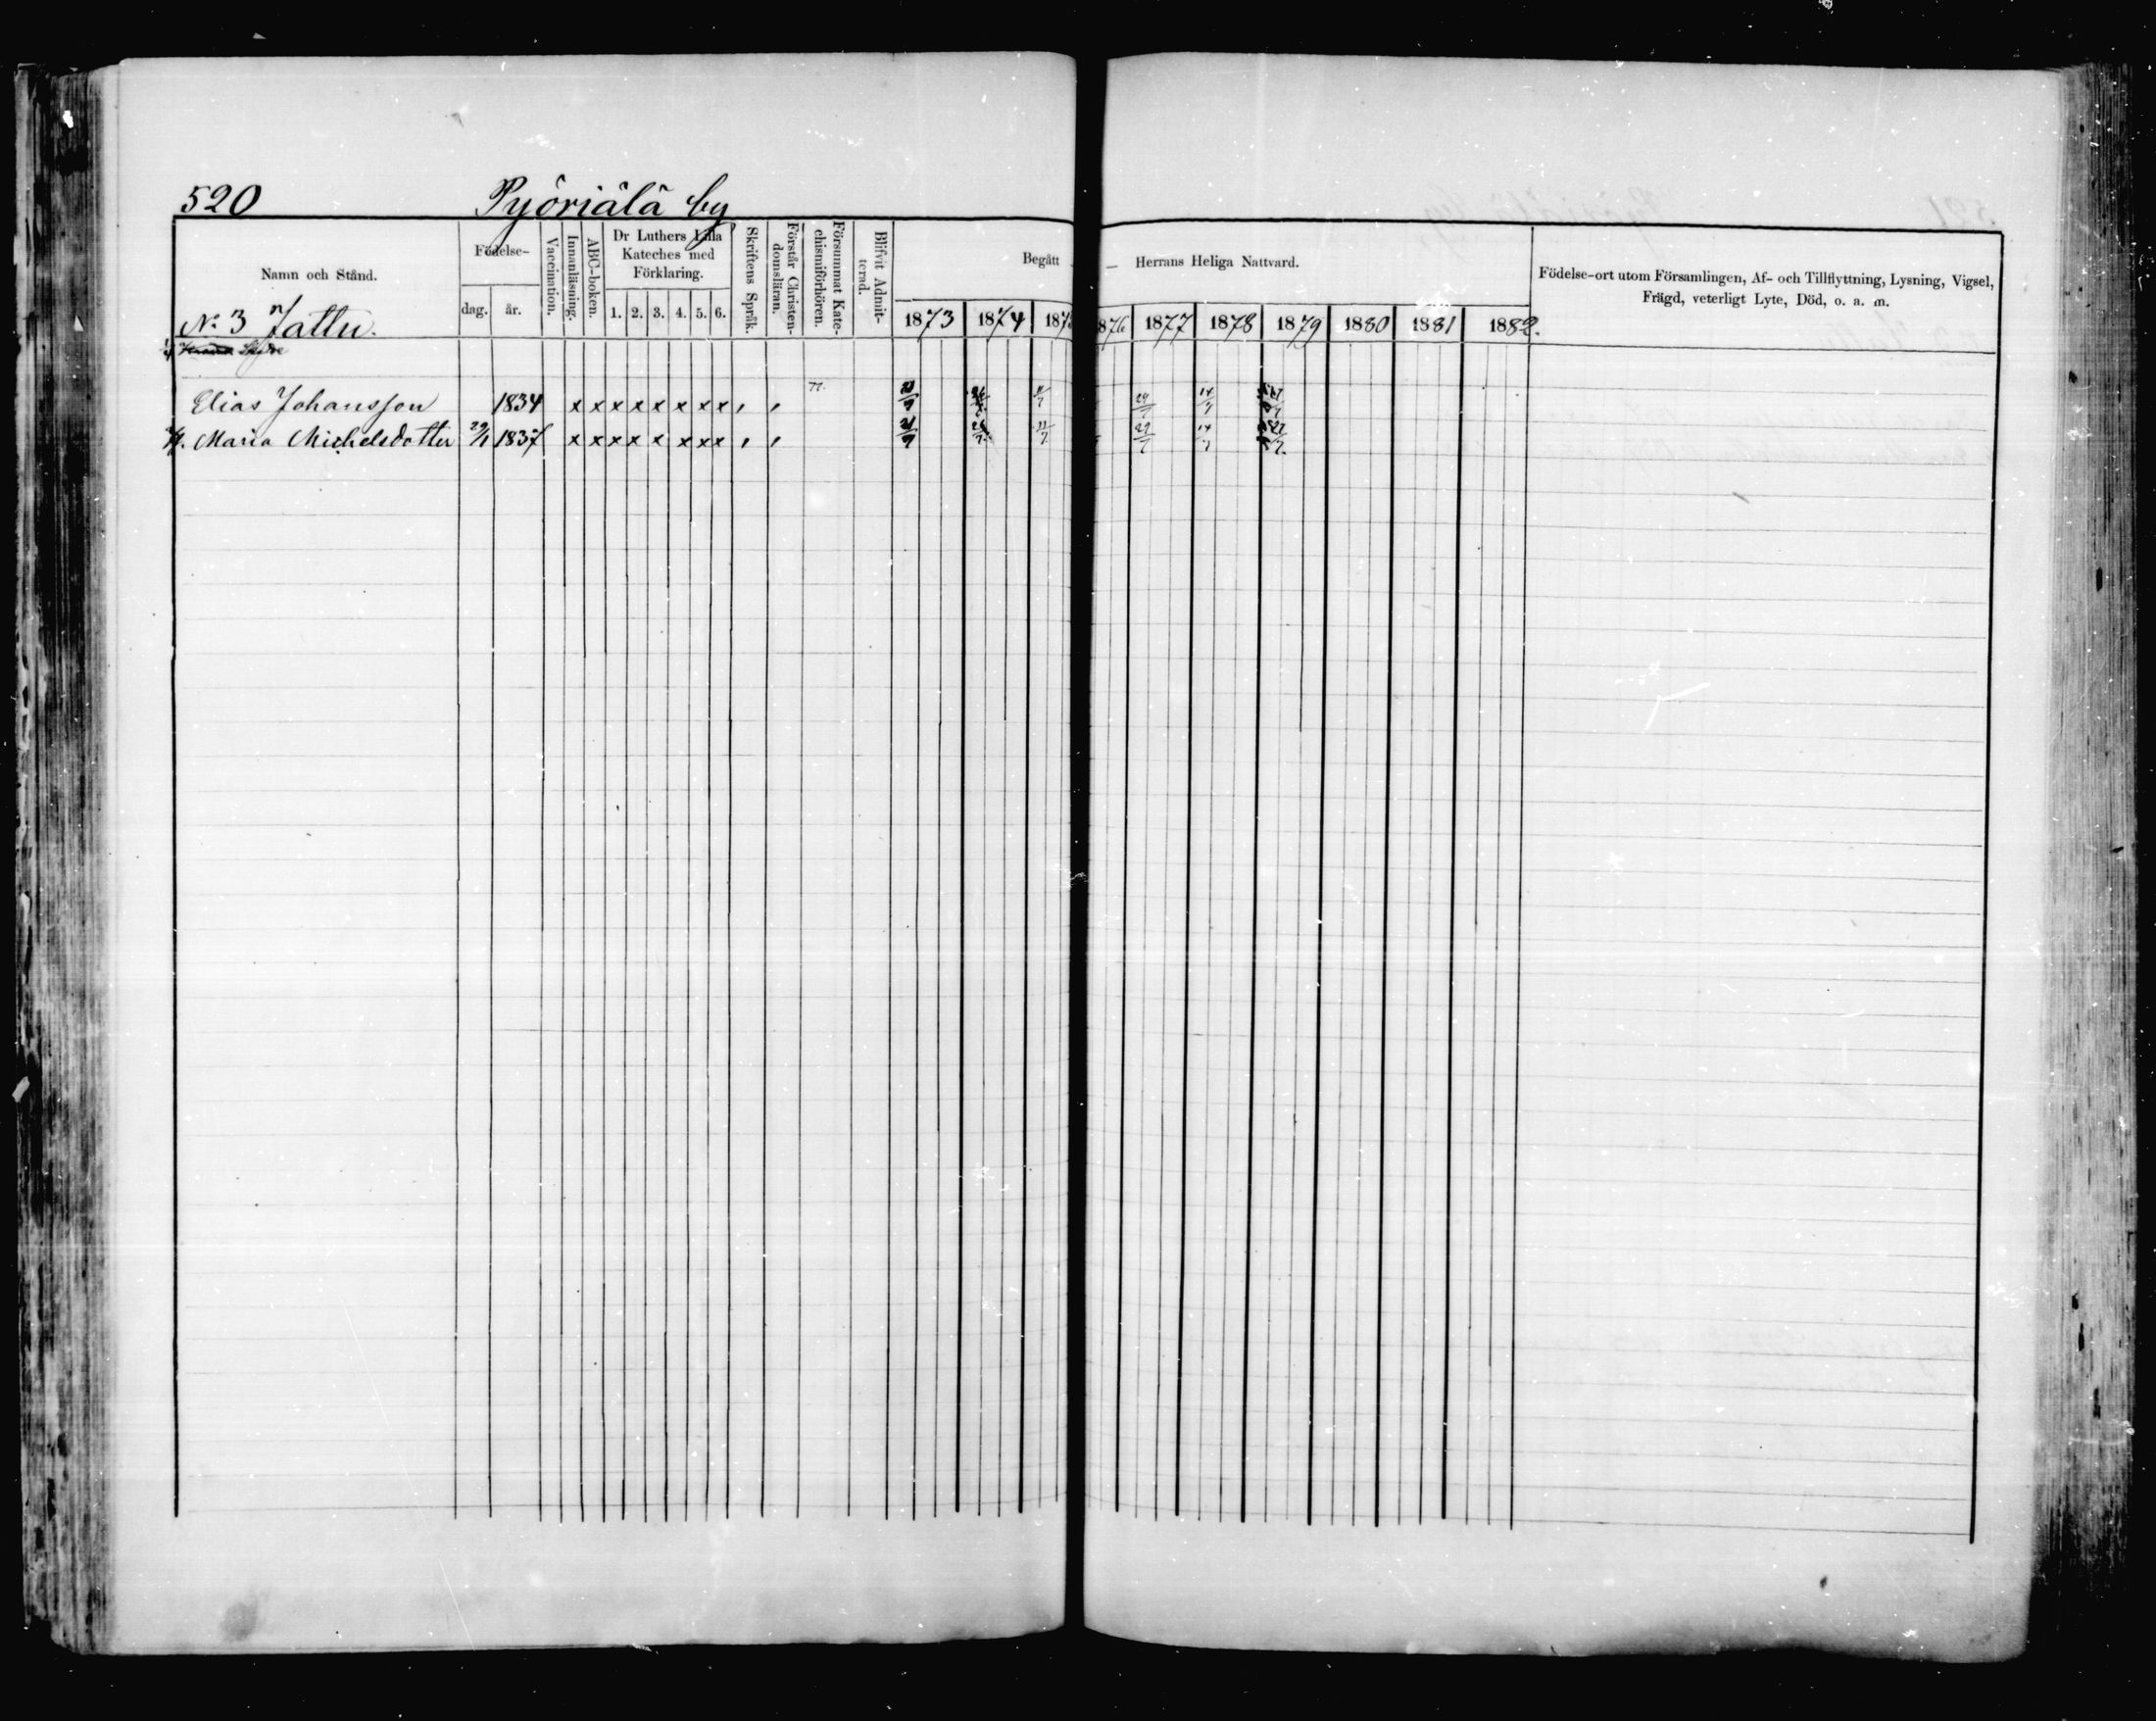 520 Pyöriälä by
Namn och Stånd.
Födelse-
dag. år.
Vaccination.
Innanläsning.
ABC-boken.
Dr Luthers Lilla
Kateches med
Förklaring.
1. 2. 3. 4. 5. 6.
Skriftens Språk.
Förstår Christen-
domsläran.
Försummat Kate-
chismiförhören.
Blifvit Admit-
terad.
Begått — Herrans Heliga Nattvard.
1873 1874 187 876 1877 1878 1879 1880 1881 1882.
Födelse-ort utom Församlingen, Af- och Tillflyttning, Lysning, Vigsel,
Frägd, veterligt Lyte, Död, o. a. m.
No 3 Jattu.
Elias Johansson 1834 x x x x x x x x 77. 11/7 29/7 14/7
H. Maria Michelsdotter 29/1 1837 x x x x x x x x 11/7 29/7 14/7